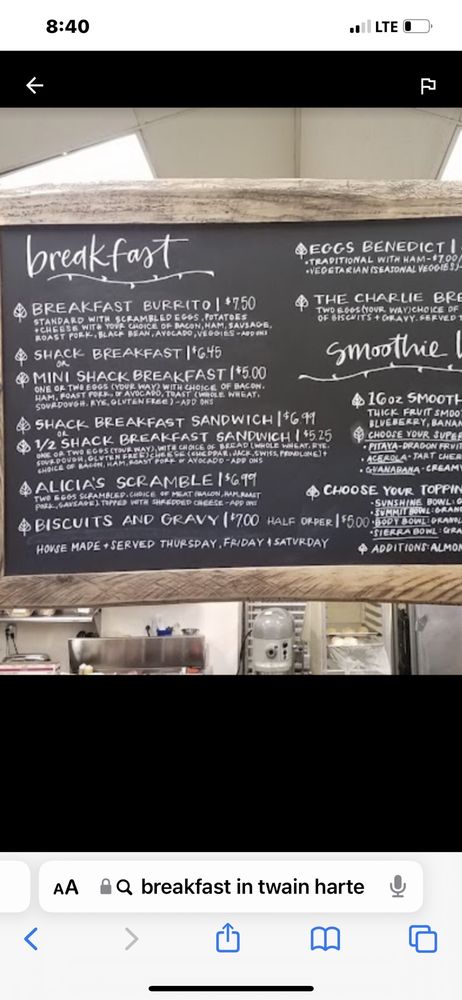 8:40
LTE
breakfast
BREAKFAST BURRITO | $7.50
STANDARD WITH SCRAMBLED EGGS, POTATOES
+ CHEESE WITH YOUR CHOICE OF BACON, HAM, SAUSAGE,
ROAST PORK, BLACK BEAN, AVOCADO, VEGGIES - ADD ONS
SHACK BREAKFAST | $6.45
OR
MINI SHACK BREAKFAST | $5.00
ONE OR TWO EGGS (YOUR WAY) WITH CHOICE OF BACON,
HAM, ROAST PORK, OR AVOCADO, TOAST (WHOLE WHEAT,
SOURDOUGH, RYE, GLUTEN FREE) - ADD ONS
SHACK BREAKFAST SANDWICH | $6.99
OR
1/2 SHACK BREAKFAST SANDWICH | $5.25
ONE OR TWO EGGS (YOUR WAY), WITH CHOICE OF BREAD (WHOLE WHEAT, RYE,
SOURDOUGH, GLUTEN FREE) CHEESE (CHEDDAR, JACK, SWISS, PROVOLONE) +
CHOICE OF BACON, HAM, ROAST PORK OR AVOCADO - ADD ONS
ALICIA'S SCRAMBLE | $6.99
TWO EGGS SCRAMBLED. CHOICE OF MEAT (BACON, HAM, ROAST
PORK, SAUSAGE). TOPPED WITH SHREDDED CHEESE - ADD ONS
BISCUITS AND GRAVY | $7.00 HALF ORDER | $5.00
HOUSE MADE + SERVED THURSDAY, FRIDAY + SATURDAY
EGGS BENEDICT |
• TRADITIONAL WITH HAM - $7.00/
• VEGETARIAN (SEASONAL VEGGIES) -
THE CHARLIE BRE
TWO EGGS (YOUR WAY) CHOICE OF
OF BISCUITS + GRAVY. SERVED
smoothie
16oz SMOOTH
THICK FRUIT SMOO
BLUEBERRY, BANAN
CHOOSE YOUR SUPER
• PITAYA - DRAGON FRUIT
• ACEROLA - TART CHER
• GUANABANA - CREAM
CHOOSE YOUR TOPPIN
• SUNSHINE BOWL: G
• SUMMIT BOWL: GRAN
• BODY BOWL: GRANOL
• SIERRA BOWL: GRA
ADDITIONS: ALMON
AA
breakfast in twain harte